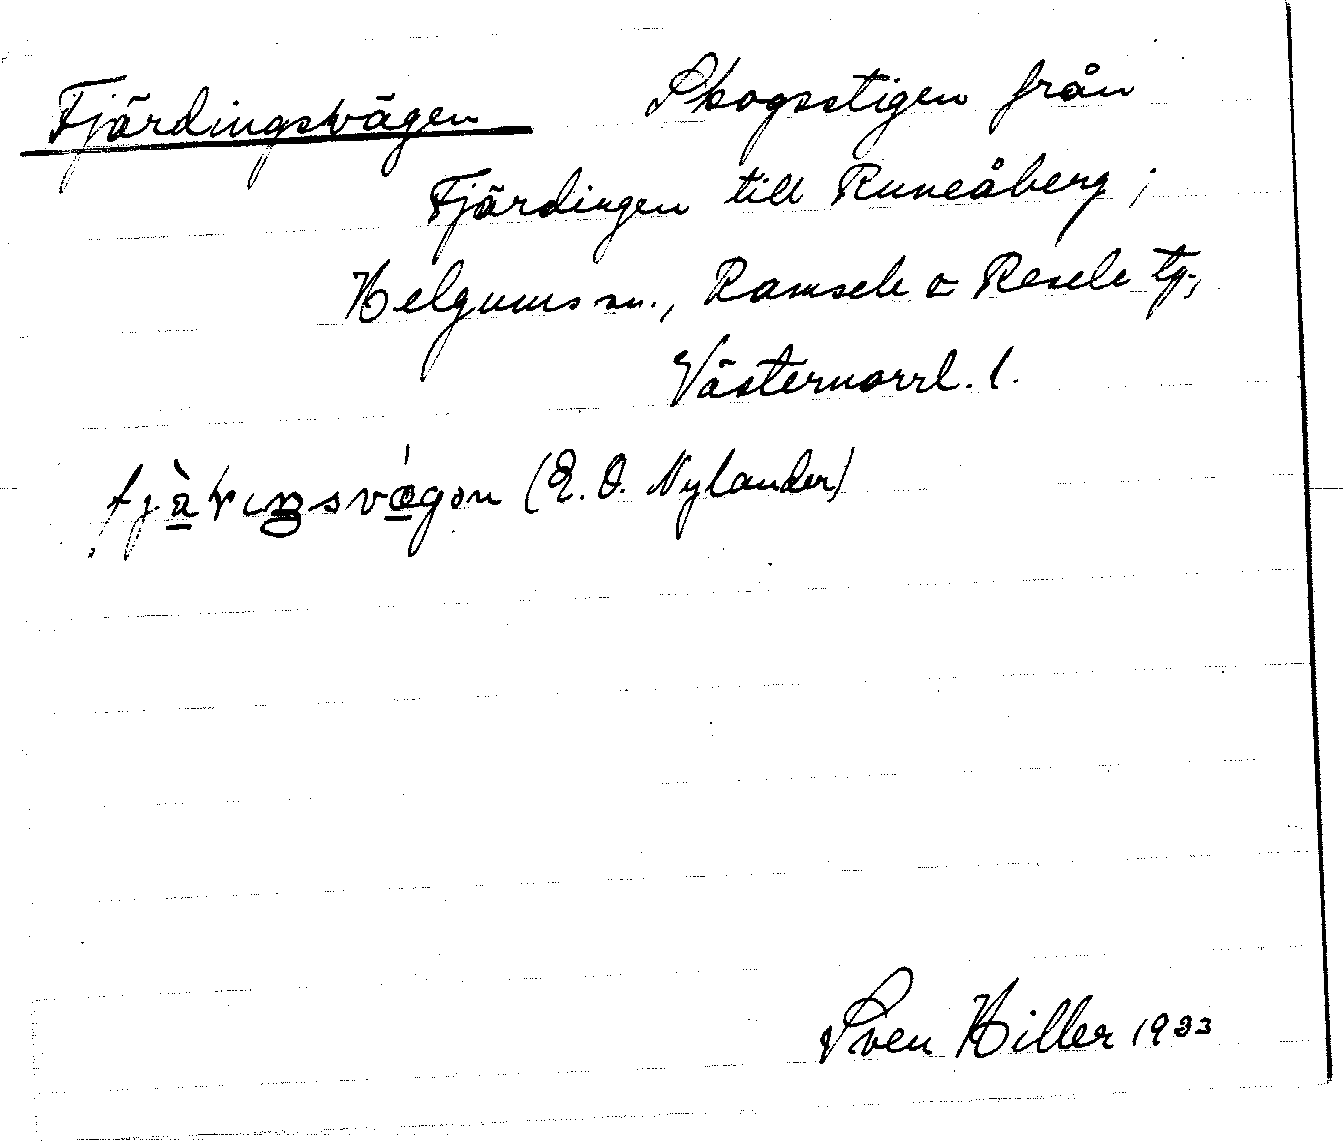 Fjärdingsvägen Skogsstigen från
Fjärdingen till Runeåberg;
Helgums sn., Ramsele o Resele tg.,
Västernorrl. l.
(E. O. Nylander)
Sven Hiller 1933